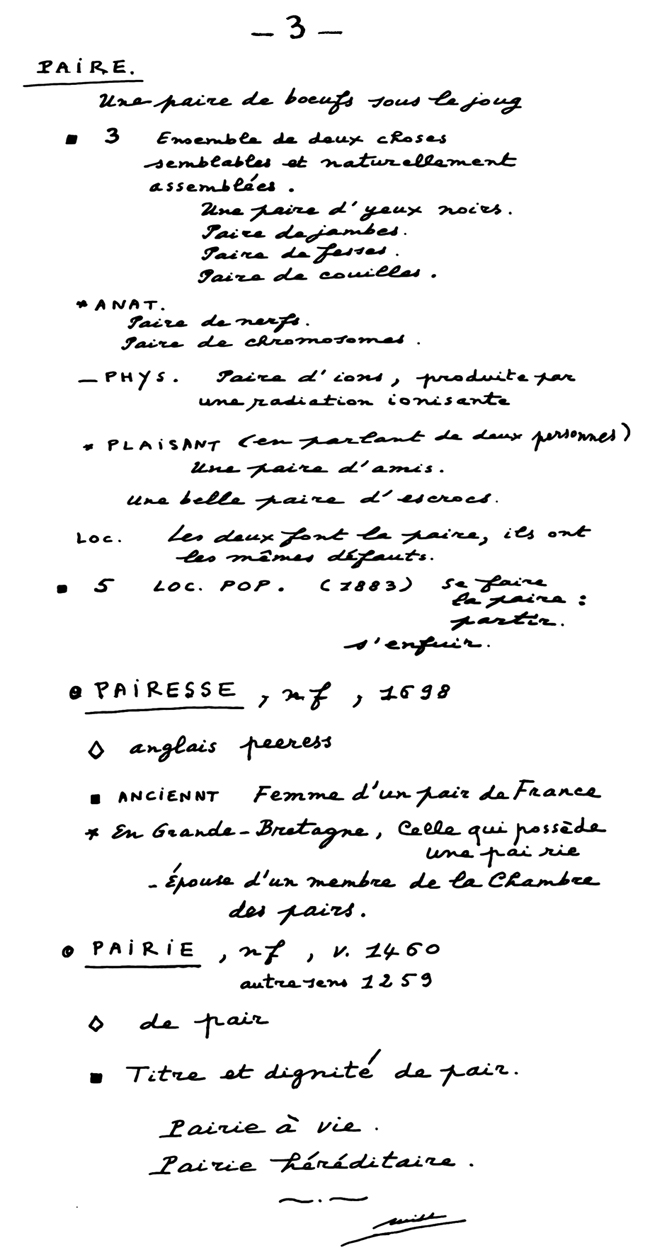 – 3 –
PAIRE.
Une paire de boeufs sous le joug
▪ 3 Ensemble de deux choses
semblables et naturellement
assemblées.
Une paire d'yeux noirs.
Paire de jambes.
Paire de fesses.
Paire de couilles.
* ANAT.
Paire de nerfs.
Paire de chromosomes.
– PHYS. Paire d'ions, produite par
une radiation ionisante
* PLAISANT (en parlant de deux personnes)
Une paire d'amis.
Une belle paire d'escrocs.
LOC. Les deux font la paire, ils ont
les mêmes défauts.
▪ 5 LOC. POP. (1883) se faire
la paire :
partir.
s'enfuir.
PAIRESSE, nf, 1698
◇ anglais peeress
▪ ANCIENNT Femme d'un pair de France
* En Grande-Bretagne, Celle qui possède
une pairie
- Épouse d'un membre de la Chambre
des pairs.
PAIRIE, nf, v. 1460
autre sens 1259
◇ de pair
▪ Titre et dignité de pair.
Pairie à vie.
Pairie héréditaire.